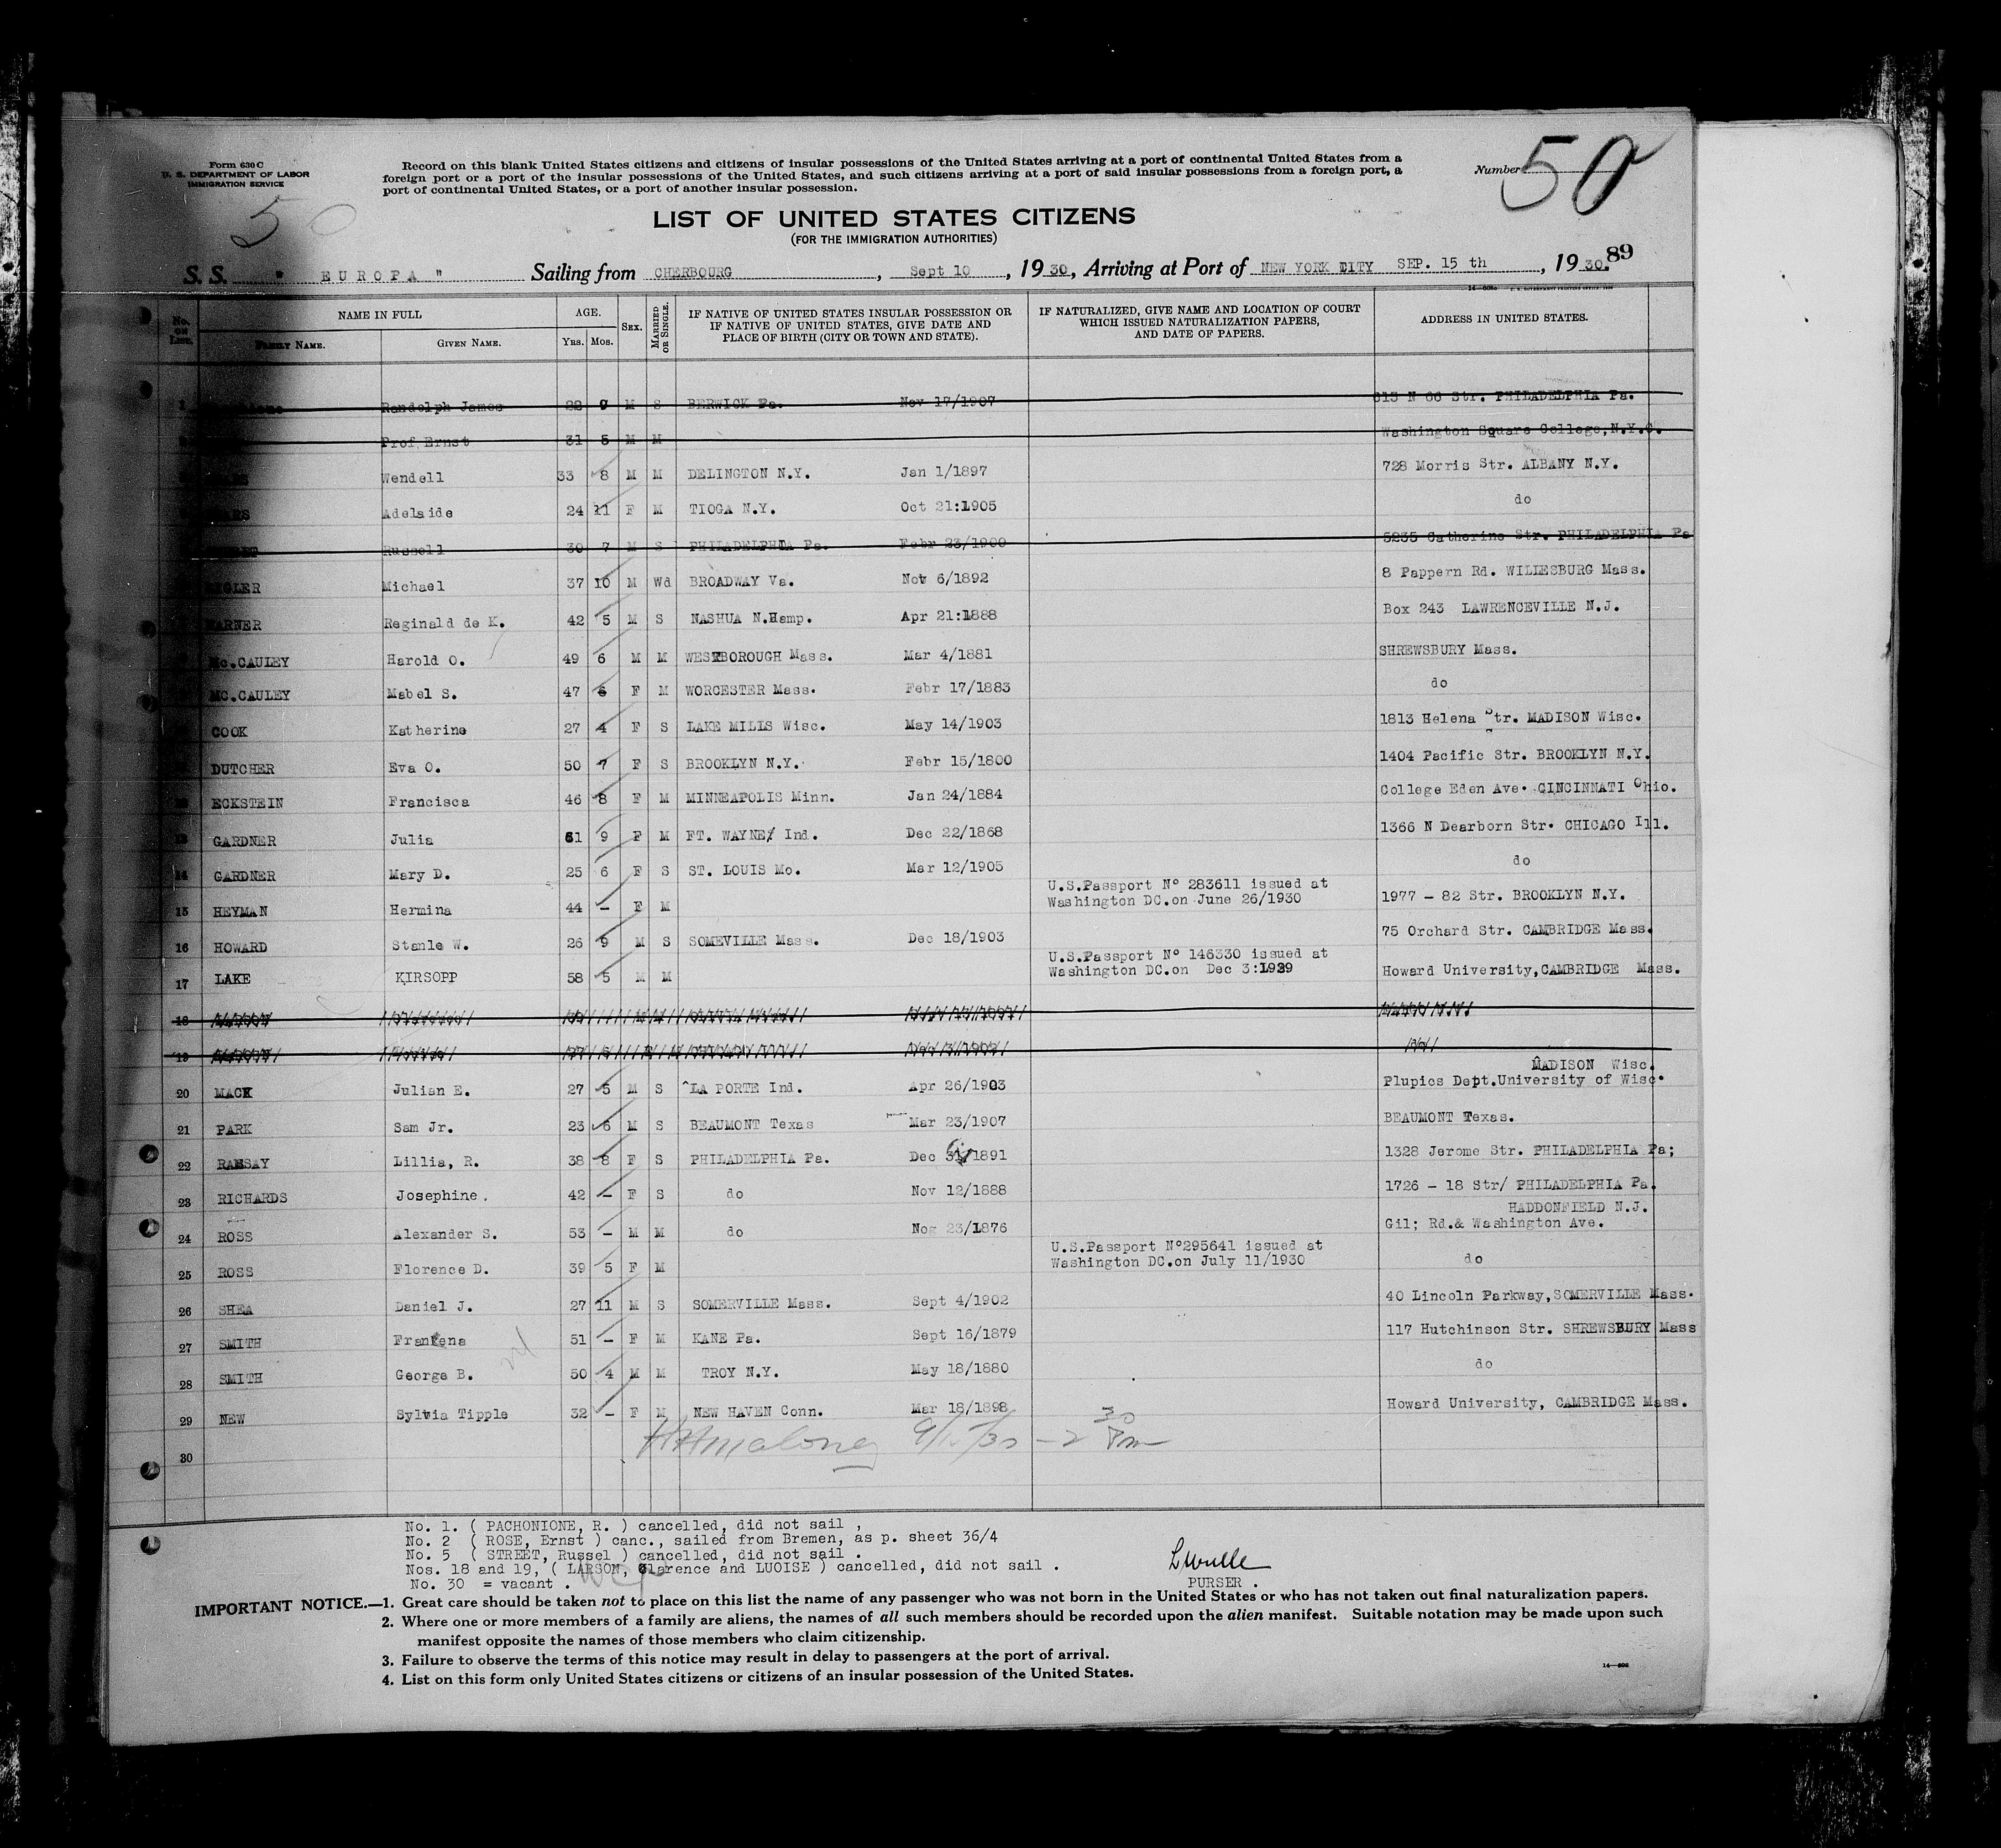 Form 630 C
U. S. DEPARTMENT OF LABOR
IMMIGRATION SERVICE
Record on this blank United States citizens and citizens of insular possessions of the United States arriving at a port of continental United States from a
foreign port or a port of the insular possessions of the United States, and such citizens arriving at a port of said insular possessions from a foreign port, a
port of continental United States, or a port of another insular possession.
Number 50
50
LIST OF UNITED STATES CITIZENS
(FOR THE IMMIGRATION AUTHORITIES)
S. S. " EUROPA " Sailing from CHERBOURG , Sept 10 , 19 30, Arriving at Port of NEW YORK CITY SEP. 15 th , 19 30. 89
No. on List. NAME IN FULL AGE. SEX. MARRIED OR SINGLE. IF NATIVE OF UNITED STATES INSULAR POSSESSION OR IF NATIVE OF UNITED STATES, GIVE DATE AND PLACE OF BIRTH (CITY OR TOWN AND STATE). IF NATURALIZED, GIVE NAME AND LOCATION OF COURT WHICH ISSUED NATURALIZATION PAPERS, AND DATE OF PAPERS. ADDRESS IN UNITED STATES.
FAMILY NAME. GIVEN NAME. YRS. MOS.
1 Randolph James 22 9 M S BERWICK Pa. Nov 17/1907 613 N 66 Str. PHILADELPHIA Pa.
Prof Ernst 31 5 M M Washington Square College, N.Y.C.
Wendell 33 8 M M DELINGTON N.Y. Jan 1/1897 728 Morris Str. ALBANY N.Y.
Adelaide 24 11 F M TIOGA N.Y. Oct 21:1905 do
Russell 30 7 M S PHILADELPHIA Pa. Febr 23/1900 5235 Catherine Str. PHILADELPHIA Pa
Michael 37 10 M Wd BROADWAY Va. Nov 6/1892 8 Pappern Rd. WILLESBURG Mass.
Reginald de K. 42 5 M S NASHUA N.Hamp. Apr 21:1888 Box 243 LAWRENCEVILLE N.J.
Mc.CAULEY Harold O. 49 6 M M WESTBOROUGH Mass. Mar 4/1881 SHREWSBURY Mass.
MC.CAULEY Mabel S. 47 6 F M WORCESTER Mass. Febr 17/1883 do
COOK Katherine 27 4 F S LAKE MILLS Wisc. May 14/1903 1813 Helena Str. MADISON Wisc.
DUTCHER Eva O. 50 7 F S BROOKLYN N.Y. Febr 15/1800 1404 Pacific Str. BROOKLYN N.Y.
ECKSTEIN Francisca 46 8 F M MINNEAPOLIS Minn. Jan 24/1884 College Eden Ave. CINCINNATI Ohio.
13 GARDNER Julia 61 9 F M FT. WAYNE/ Ind. Dec 22/1868 1366 N Dearborn Str. CHICAGO Ill.
14 GARDNER Mary D. 25 6 F S ST. LOUIS Mo. Mar 12/1905 do
15 HEYMAN Hermina 44 - F M U.S.Passport N° 283611 issued at Washington DC.on June 26/1930 1977 - 82 Str. BROOKLYN N.Y.
16 HOWARD Stanle W. 26 9 M S SOMEVILLE Mass. Dec 18/1903 75 Orchard Str. CAMBRIDGE Mass.
17 LAKE KIRSOPP 58 5 M M U.S.Passport N° 146330 issued at Washington DC.on Dec 3:1929 Howard University, CAMBRIDGE Mass.
18
19
20 MACK Julian E. 27 5 M S LA PORTE Ind. Apr 26/1903 Plupics Dept.University of Wisc. MADISON Wisc.
21 PARK Sam Jr. 23 6 M S BEAUMONT Texas Mar 23/1907 BEAUMONT Texas.
22 RAMSAY Lillia, R. 38 8 F S PHILADELPHIA Pa. Dec 31/1891 1328 Jerome Str. PHILADELPHIA Pa;
23 RICHARDS Josephine. 42 - F S do Nov 12/1888 1726 - 18 Str/ PHILADELPHIA Pa.
24 ROSS Alexander S. 53 - M M do Nog 23/1876 HADDONFIELD N.J. Gil; Rd.& Washington Ave.
25 ROSS Florence D. 39 5 F M U.S.Passport N°295641 issued at Washington DC.on July 11/1930 do
26 SHEA Daniel J. 27 11 M S SOMERVILLE Mass. Sept 4/1902 40 Lincoln Parkway, SOMERVILLE Mass.
27 SMITH Frankena 51 - F M KANE Pa. Sept 16/1879 117 Hutchinson Str. SHREWSBURY Mass
28 SMITH George B. 50 4 M M TROY N.Y. May 18/1880 do
29 NEW Sylvia Tipple 32 - F M NEW HAVEN Conn. Mar 18/1898 Howard University, CAMBRIDGE Mass.
30
No. 1. ( PACHONIONE, R. ) cancelled, did not sail ,
No. 2 ( ROSE, Ernst ) canc., sailed from Bremen, as p. sheet 36/4
No. 5 ( STREET, Russel ) cancelled, did not sail .
Nos. 18 and 19, ( LARSON, Clarence and LUOISE ) cancelled, did not sail .
No. 30 = vacant .
PURSER .
IMPORTANT NOTICE.—1. Great care should be taken not to place on this list the name of any passenger who was not born in the United States or who has not taken out final naturalization papers.
2. Where one or more members of a family are aliens, the names of all such members should be recorded upon the alien manifest. Suitable notation may be made upon such
manifest opposite the names of those members who claim citizenship.
3. Failure to observe the terms of this notice may result in delay to passengers at the port of arrival.
4. List on this form only United States citizens or citizens of an insular possession of the United States.